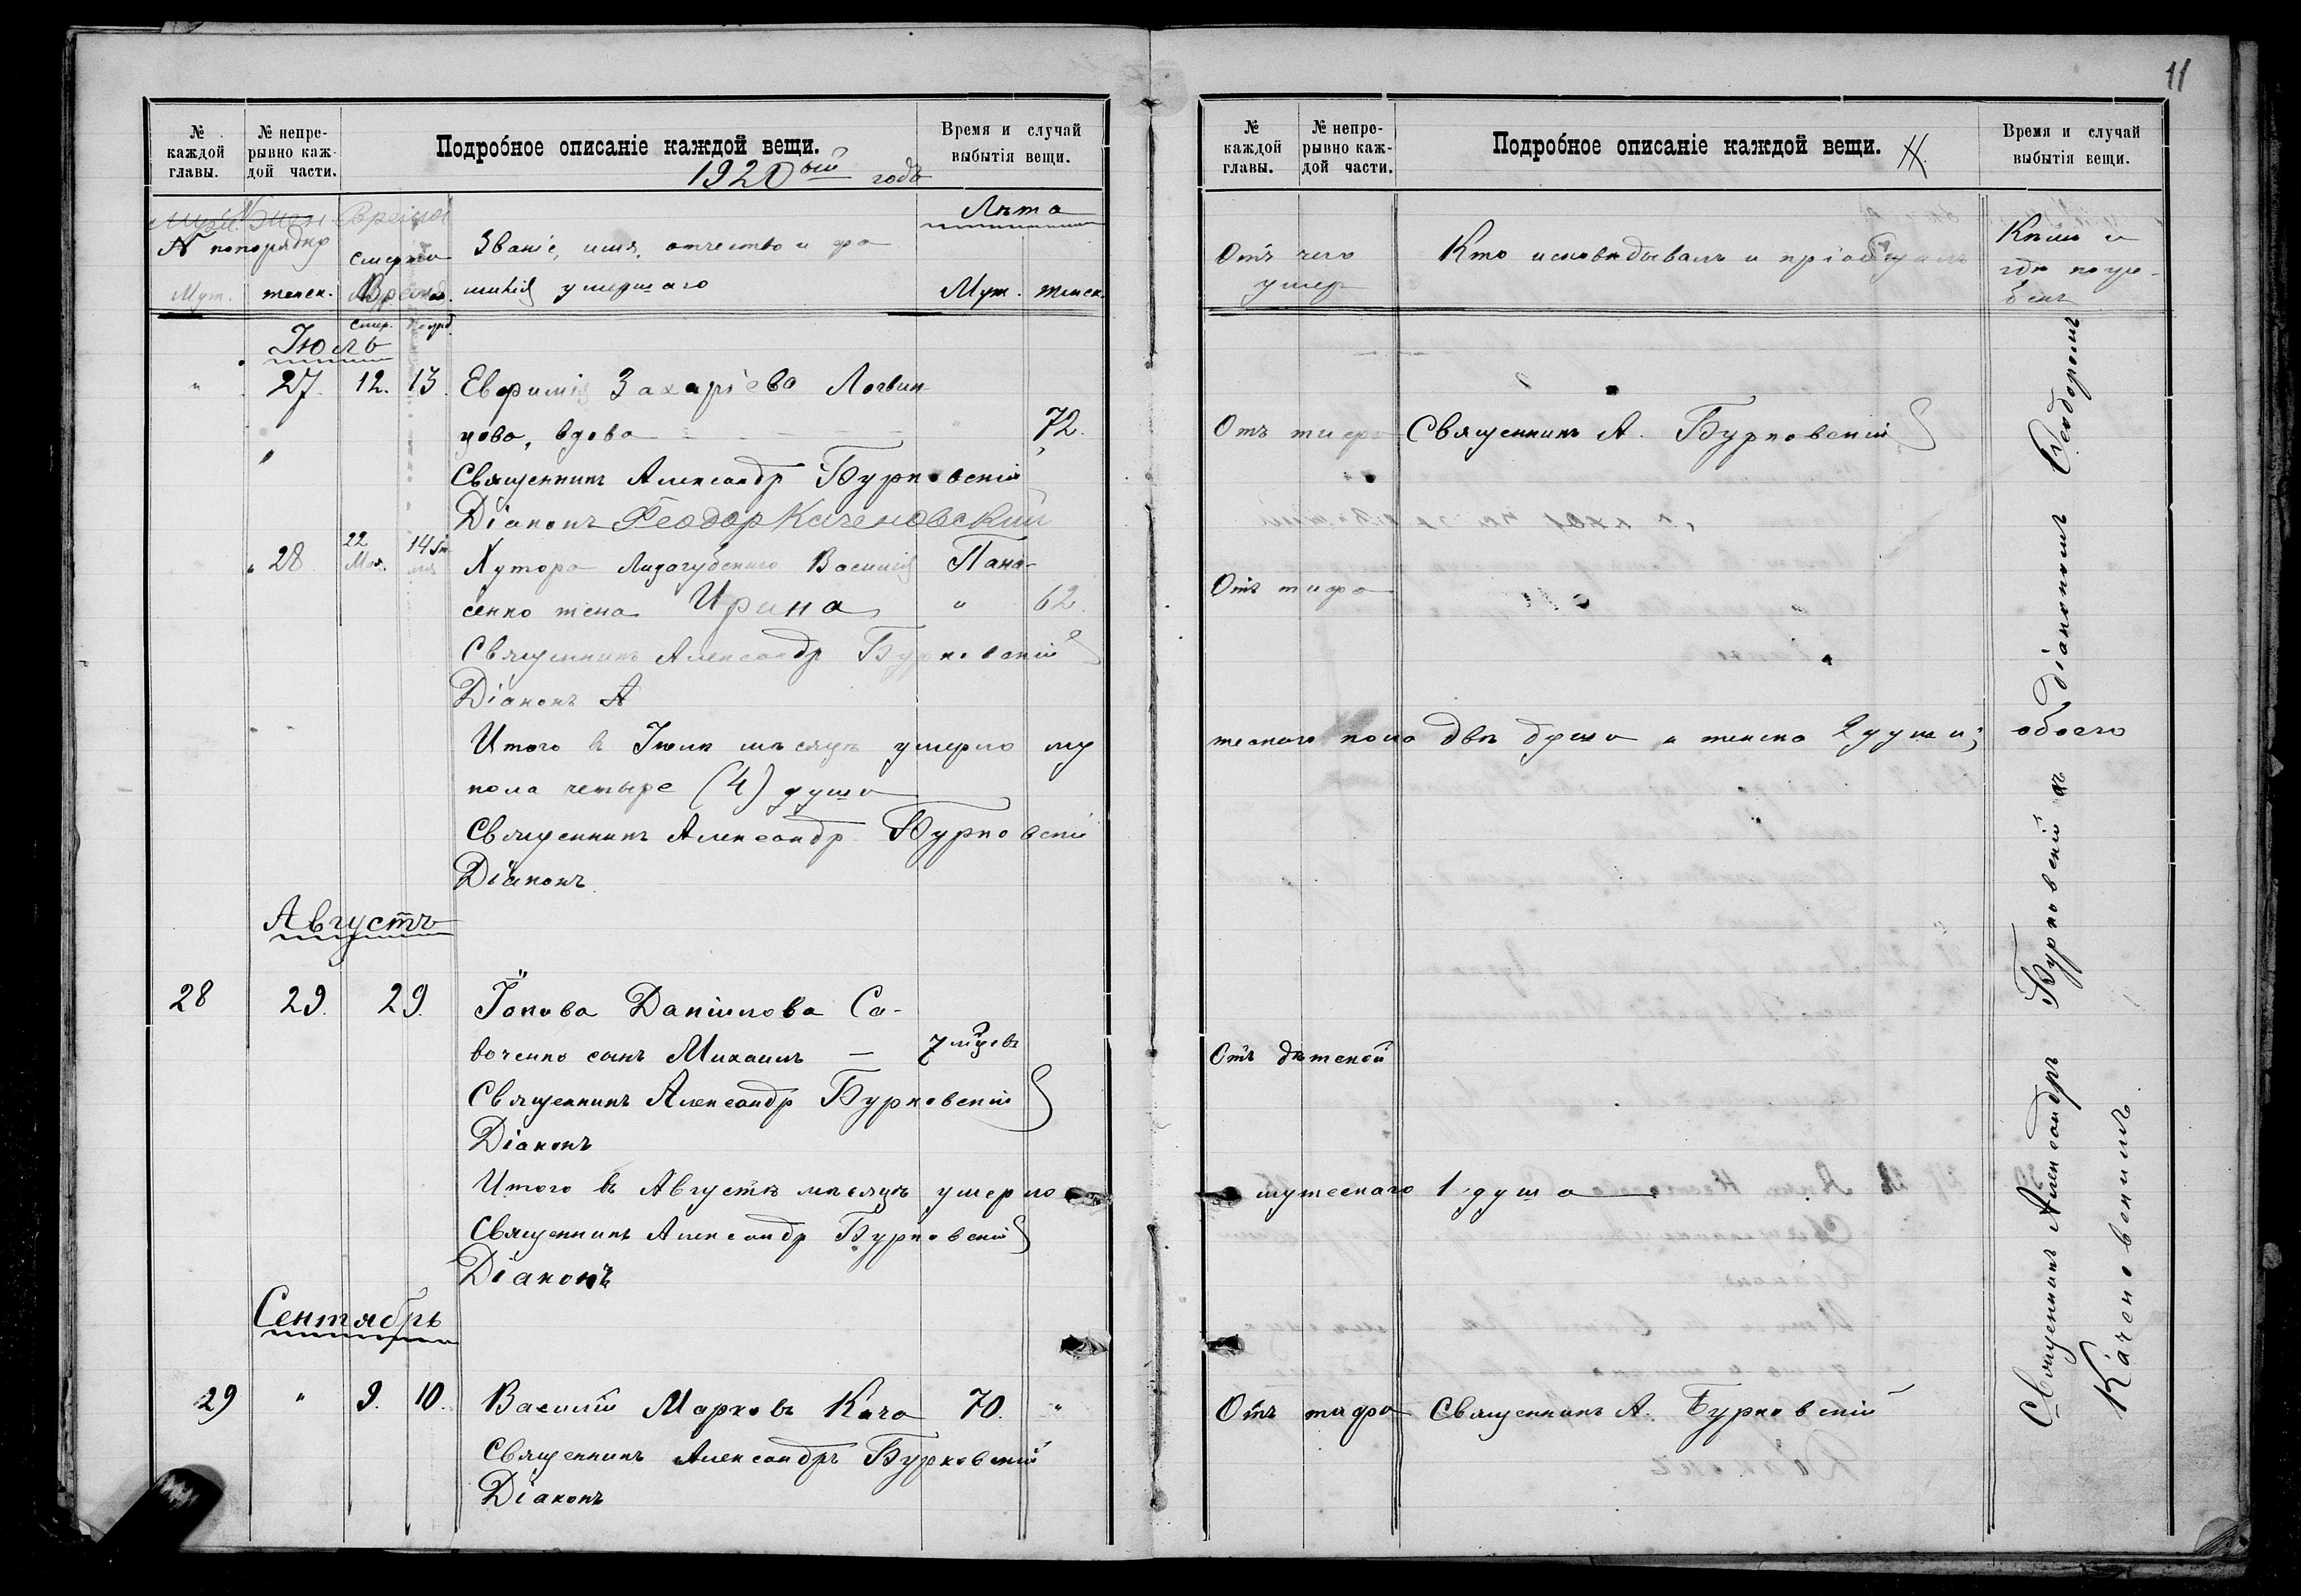 11
№ каждой главы.
№ непрерывно каждой части.
Подробное описаніе каждой вещи.
Время и случай выбытія вещи.
1920ый годъ
№ попорядку
Время
смерти
Званіе, имя, отчество и фа
миліяумершаго
Лѣта
Муж. женск.
Муж. женск.
смер. погреб.
Іюль
" 27. 12. 13. Евфимія Захаріева Логвин
цова, вдова " 72.
Священникъ Александр Бурковскій
Діаконъ Феодор Каченовский
" 28 22 Мая. 14 Хутора Лизогубскаго Василія Пана-
сенко жена Ирина " 62.
Священникъ Александр Бурковскій
Діаконъ А
Итого въ Іюлѣ мѣсяцѣ умерло му
пола четыре (4) душа
Священникъ Александр Бурковскій
Діаконъ.
Августъ
28 29. 29. Іакова Даніилова Са-
воченко сынъ Михаилъ — 7
Священникъ Александр Бурковскій
Діаконъ
Итого въ Августѣ мѣсяцѣ умерло
Священникъ Александр Бурковскій
Діаконъ
Сентябрь
29 " 9. 10. Василій Марковъ Кача 70. "
Священникъ Александръ Бурковскій
Діаконъ
№ каждой главы.
№ непрерывно каждой части.
Подробное описаніе каждой вещи.
Время и случай выбытія вещи.
Отъ чего
умер
Кто исповѣдывалъ и пріобщалъ
Кѣмъ и
гдѣ погре-
бенъ
Отъ тифа Священникъ А. Бурковскій
Отъ тифа
жескаго пола двѣ душа и женска 2 души; обоего
Отъ дѣтской
мужескаго 1 душа
Отъ тифа Священникъ А. Бурковскій
Священникъ Александръ Бурковскій съ Діакономъ Феодоромъ
Каченовскимъ.